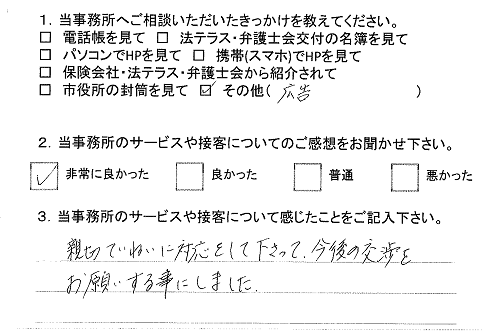 1．当事務所へご相談いただいたきっかけを教えてください。
□ 電話帳を見て □ 法テラス・弁護士会交付の名簿を見て
□ パソコンでHPを見て □ 携帯(スマホ)でHPを見て
□ 保険会社・法テラス・弁護士会から紹介されて
□ 市役所の封筒を見て ☑ その他( 広告 )
2．当事務所のサービスや接客についてのご感想をお聞かせ下さい。
☑ 非常に良かった □ 良かった □ 普通 □ 悪かった
3．当事務所のサービスや接客について感じたことをご記入下さい。
親切でいねいに対応をして下さって、今後の交渉を
お願いする事にしました。